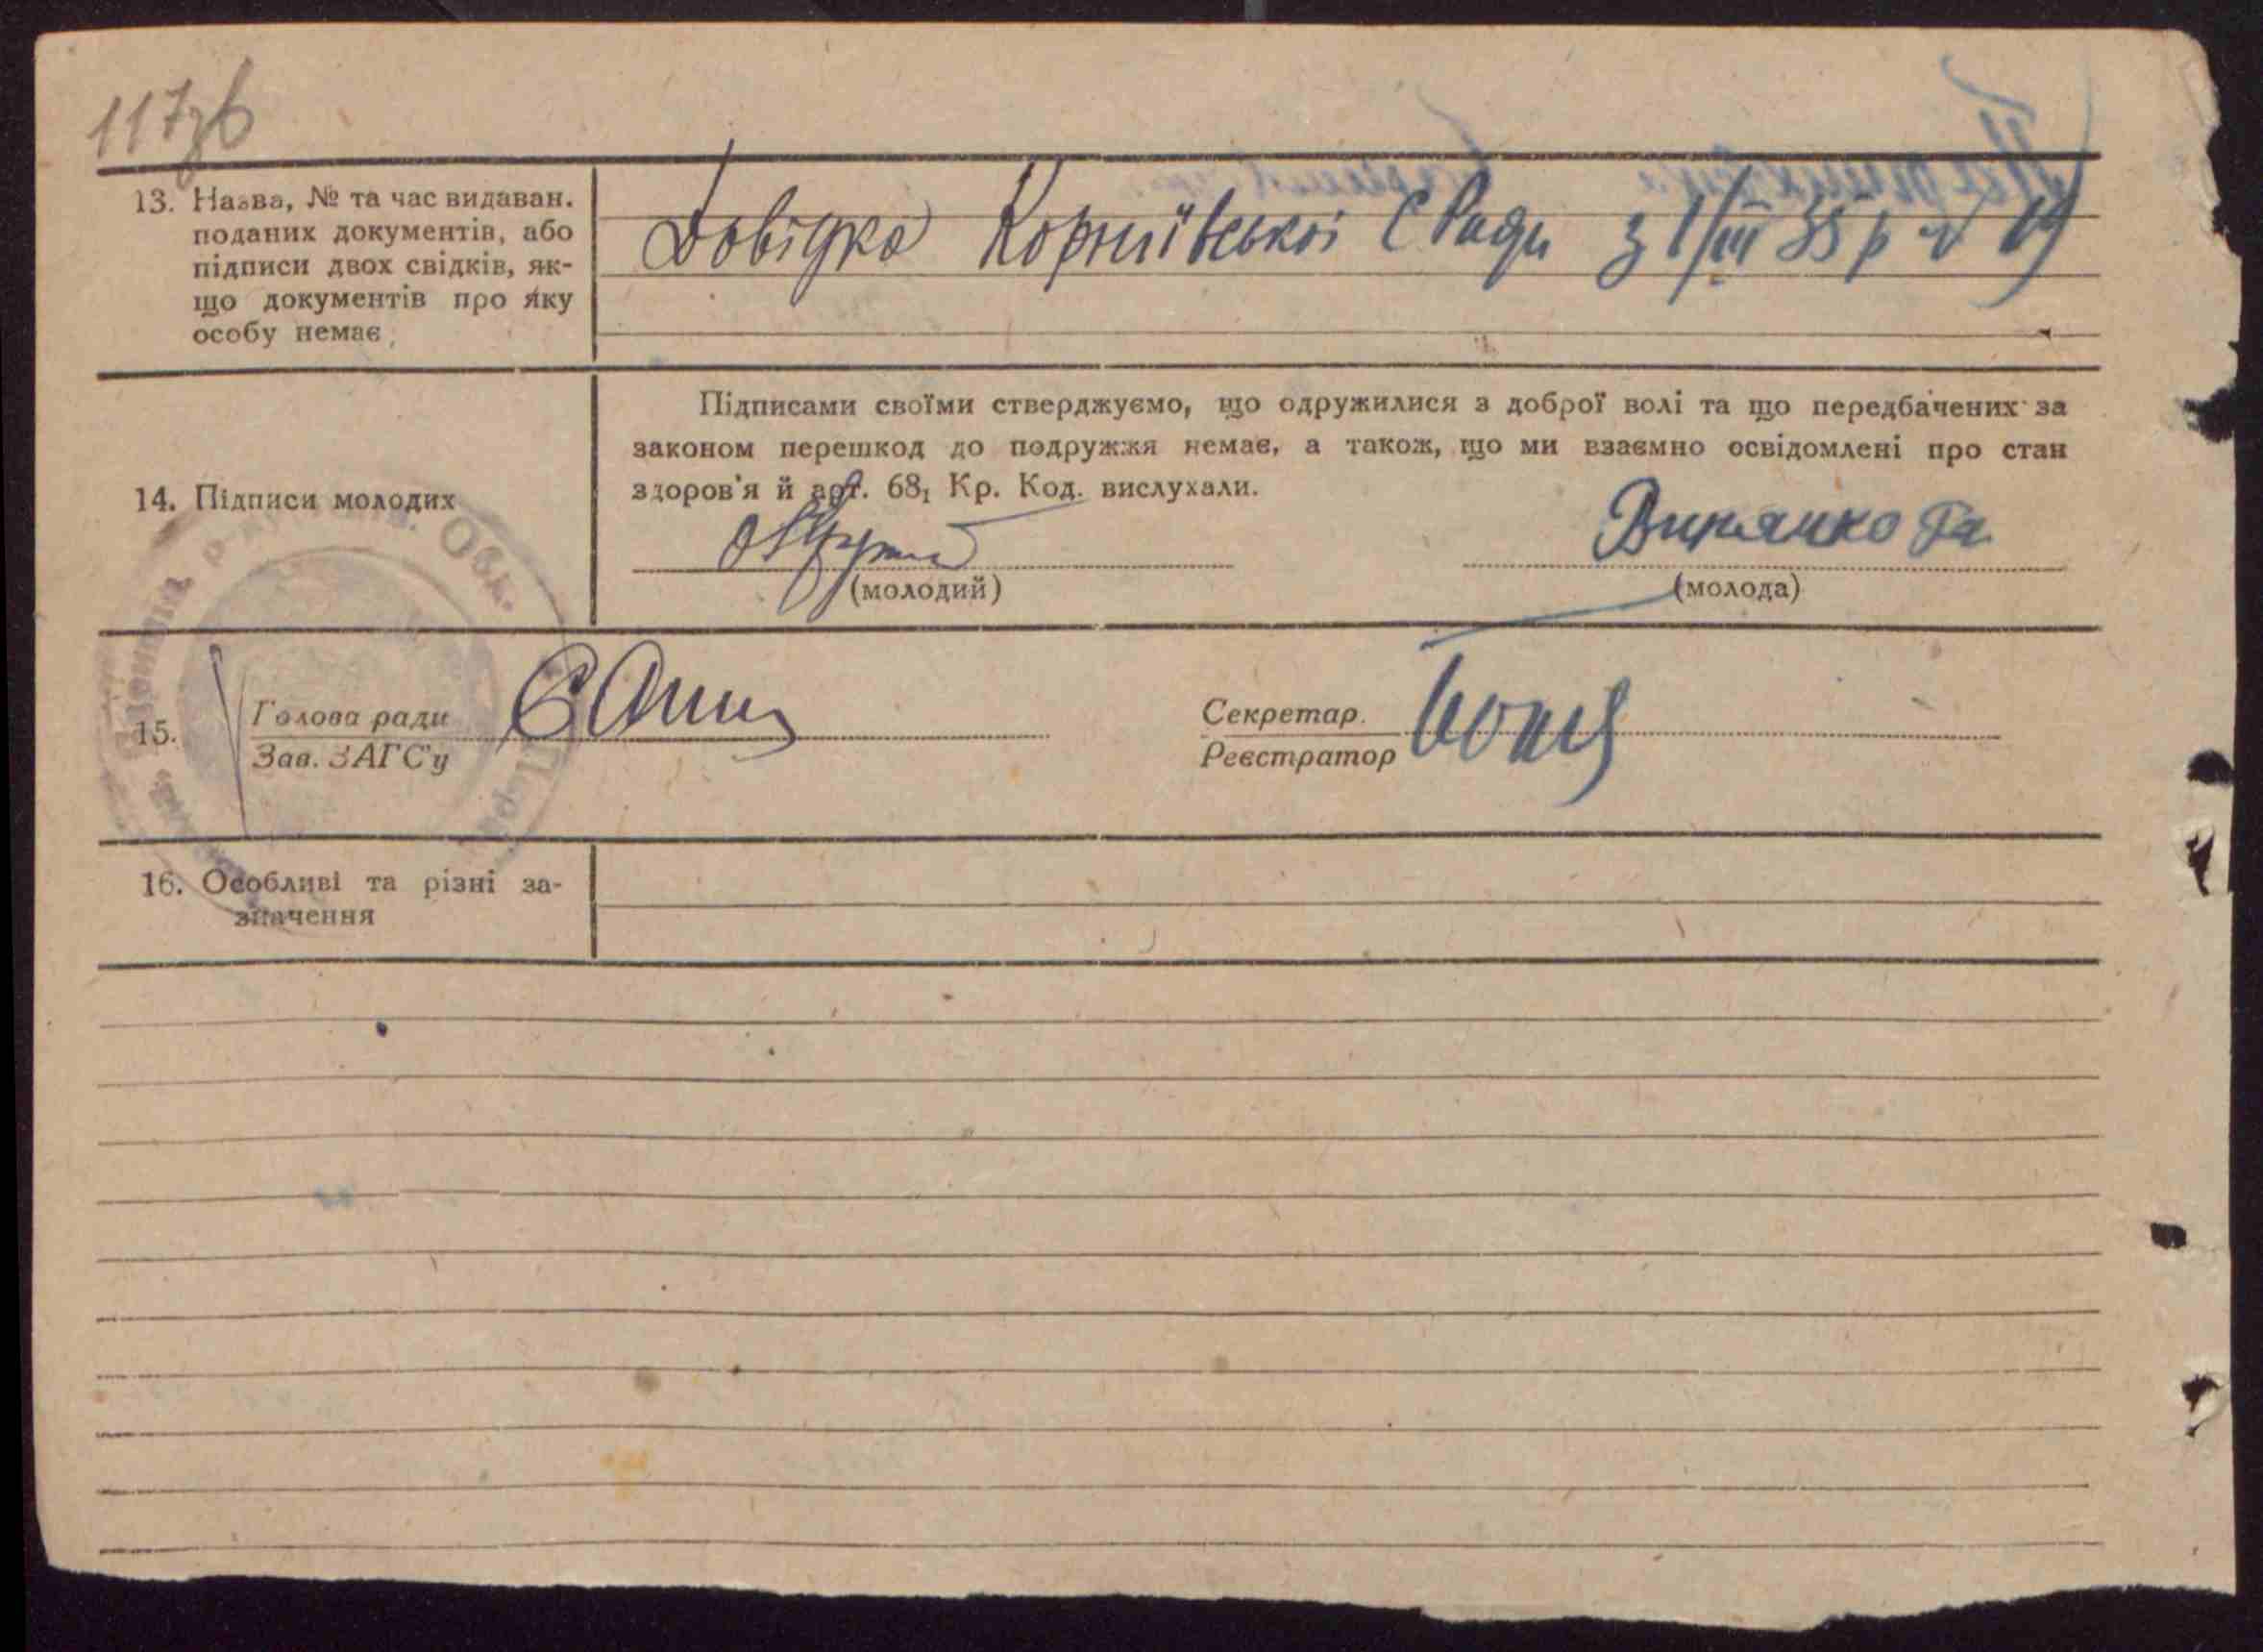 117зв
13. Назва, № та час видаван.
поданих документів, або
підписи двох свідків, як-
що документів про яку
особу немає
Довідка Корніївської С Ради з 1/III 35 р № 19
Підписами своїми стверджуємо, що одружилися з доброї волі та що передбачених за
законом перешкод до подружжя немає, а також, що ми взаємно освідомлені про стан
здоров'я й арт. 68₁ Кр. Код. вислухали.
14. Підписи молодих
(молодий)
(молода)
15.
Голова ради
Зав. ЗАГС'у
Секретар
Реєстратор
16. Особливі та різні за-
значення
Обл.